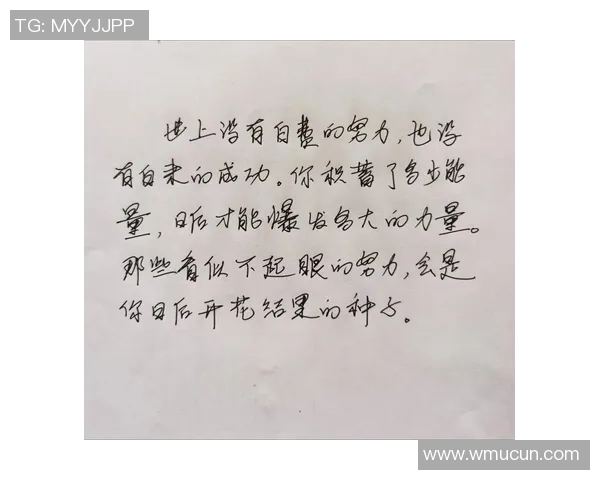 TG: MYYJJPP
世上没有白费的努力,也没
有白来的成功。你积蓄了多少能
量,日后才能爆发多大的力量。
那些看似不起眼的努力,会是
你日后开花结果的种子。
www.wmucun.com